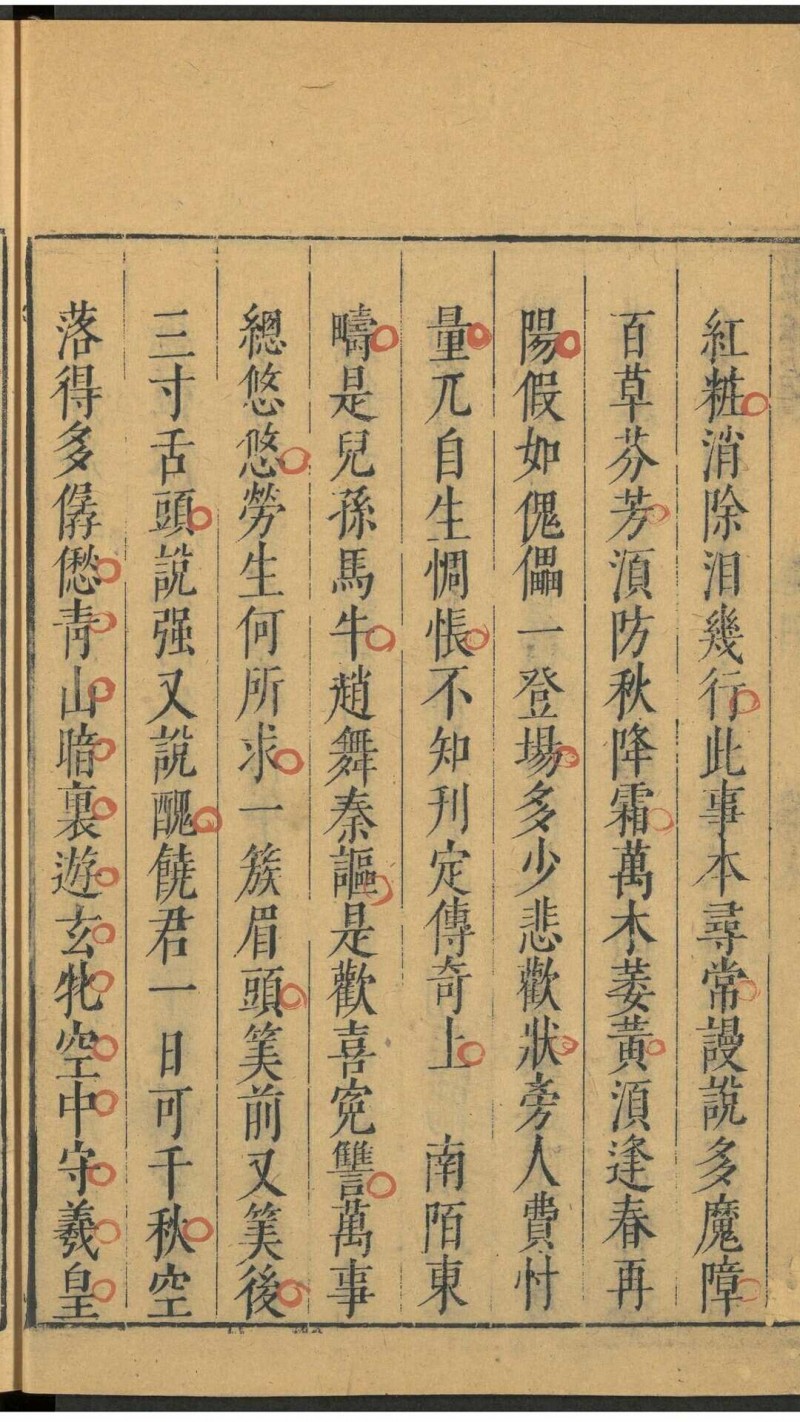 紅粧消除泪幾行此事本尋常謾説多魔障
百草芬芳湏防秋降霜萬木萎黃湏逢春再
陽假如傀儡一登場多少悲歡狀旁人費忖
量兀自生惆悵不知刋定傳奇上　南陌東
疇是兒孫馬牛趙舞秦謳是歡喜寃讐萬事
總悠悠勞生何所求一簇眉頭筭前又筭後
三寸舌頭説强又説醜饒君一日可千秋空
落得多僝僽靑山暗裏遊玄牝空中守羲皇